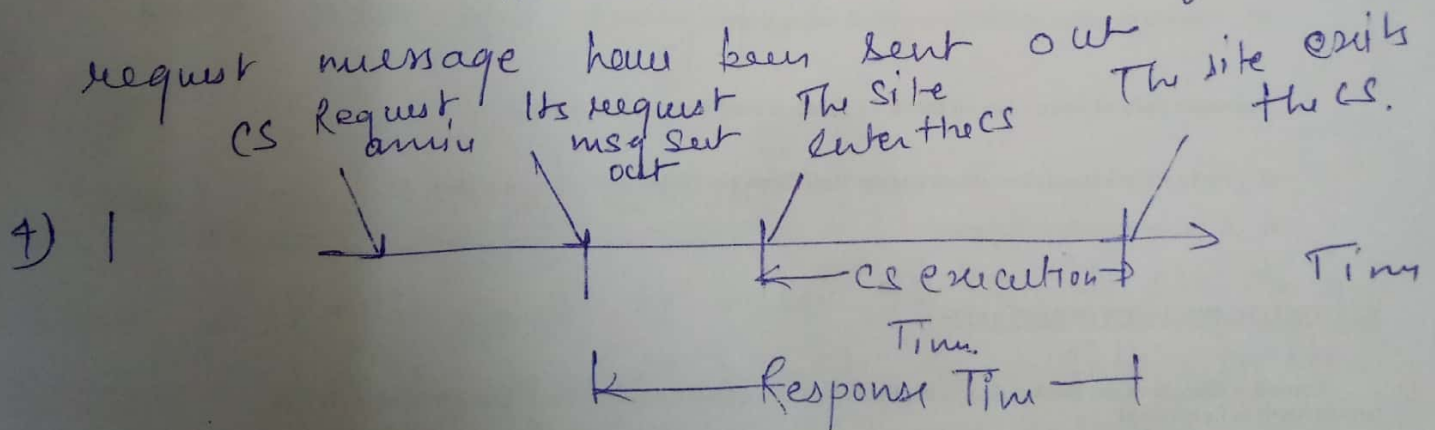 request message have been sent out
CS Request arrive
Its request msg sent out
The site enter the CS
The site exits the CS.
4)
Time
CS execution
Time.
Response Time